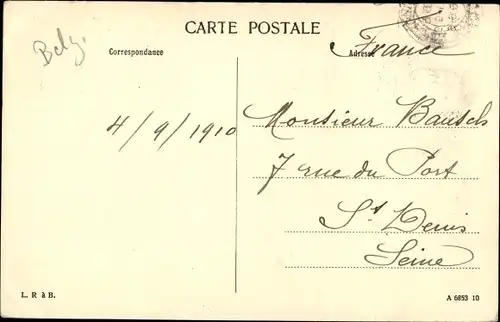 CARTE POSTALE
Belg.
Correspondance
Adresse
France
4/9/1910
Monsieur Bausch
7 rue du Port
St Denis
Seine
L. R à B.
A 6853 10